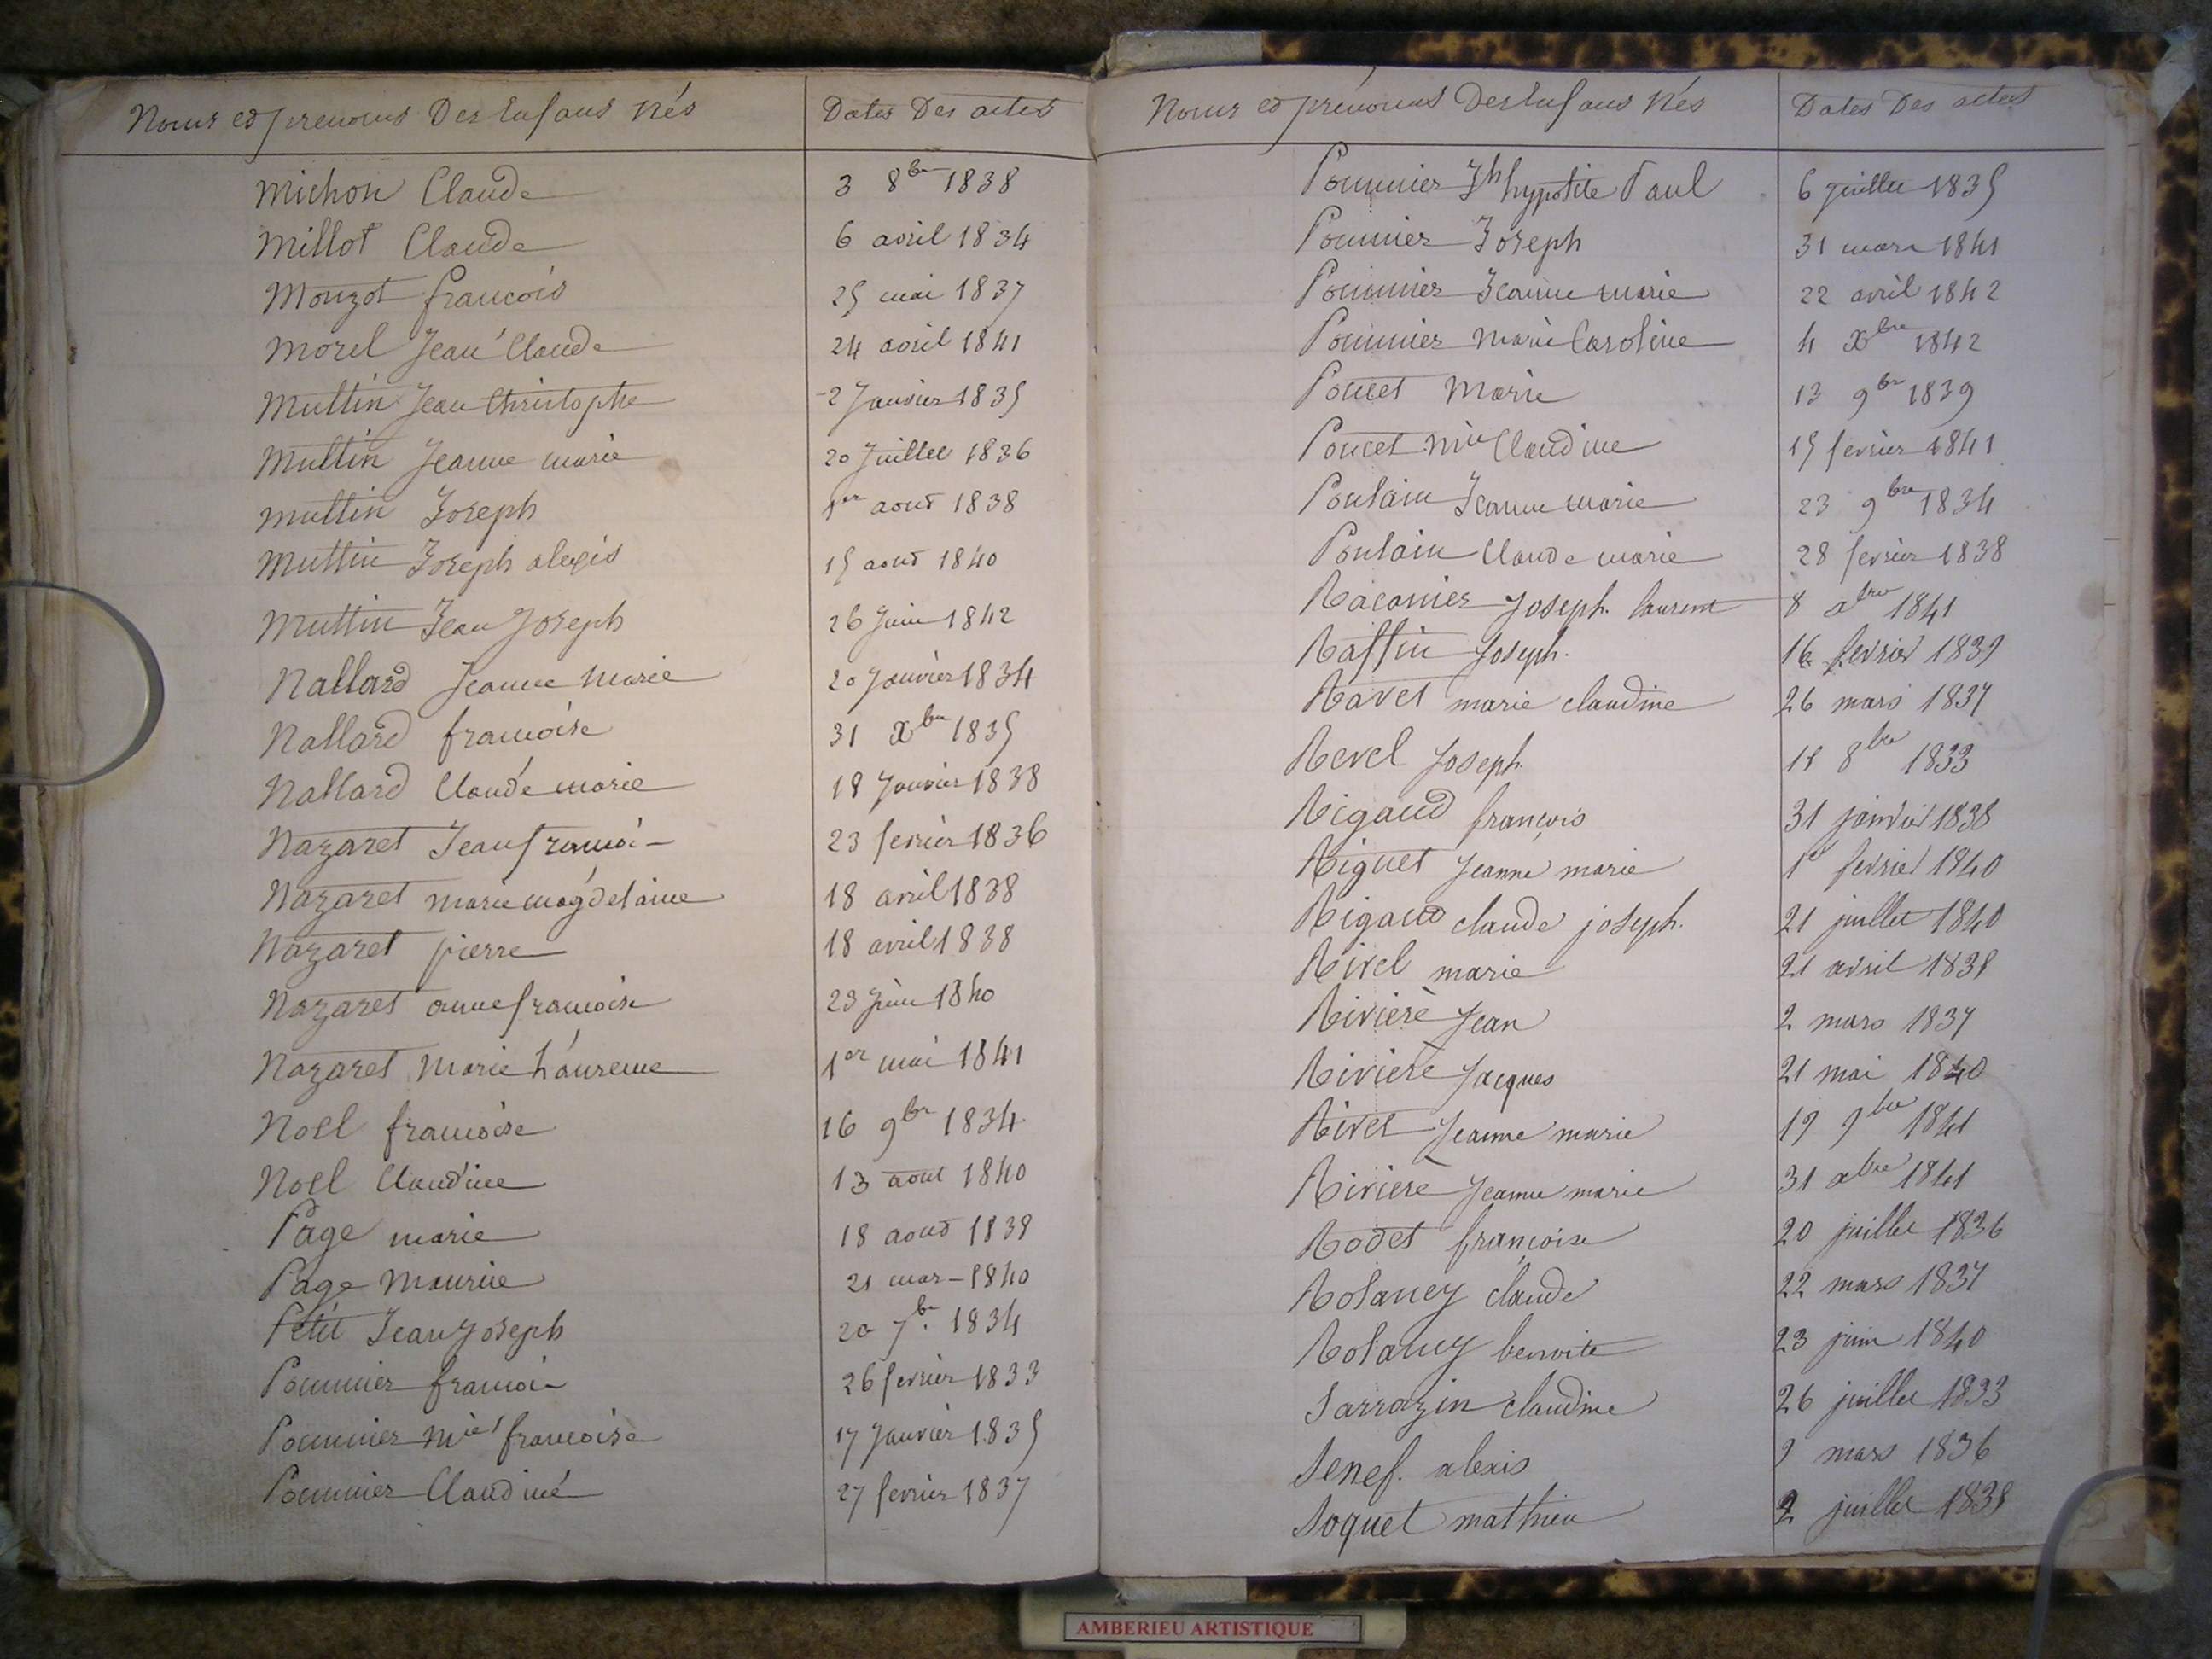 Noms et prenoms Des Enfans Nés Dates Des actes
Michon Claude 3 8bre 1838
Millot Claude 6 avril 1834
Monzot francois 25 mai 1837
Morel Jean Claude 24 avril 1841
Muttin Jean Christophe 2 Janvier 1835
Muttin Jeanne marie 20 Juillet 1836
Muttin Joseph 1er aout 1838
Muttin Joseph alexis 15 aout 1840
Muttin Jean Joseph 26 Juin 1842
Nallard Jeanne Marie 20 Janvier 1834
Nallard francoise 31 Xbre 1835
Nallard Claude marie 18 Janvier 1838
Nazaret Jean francoi- 23 fevrier 1836
Nazaret marie magdelaine 18 avril 1838
Nazaret pierre 18 avril 1838
Nazaret anne francoise 23 Juin 1840
Nazaret Marie 1er mai 1841
Noel francoise 16 9bre 1834
Noel Claudine 13 aout 1840
Page marie 18 aout 1838
Page Maurice 21 mar- 1840
Petit Jean Joseph 20 7bre 1834
Pommier francoi- 26 fevrier 1833
Pommier Mie francoise 17 Janvier 1835
Pommier Claudine 27 fevrier 1837
Noms et prénoms Des Enfans Nés Dates Des actes
Pommier Jh hypolite Paul 6 Juillet 1835
Pommier Joseph 31 mars 1841
Pommier Jeanne marie 22 avril 1842
Pommier Marie Caroline 4 Xbre 1842
Poncet Marie 13 9bre 1839
Poncet Mie Claudine 15 fevrier 1841
Poulain Jeanne marie 23 9bre 1834
Poulain Claude marie 28 fevrier 1838
Racanier Joseph laurent 8 xbre 1841
Raffin Joseph. 16 fevrier 1839
Ravet marie claudine 26 mars 1837
Revel Joseph 8bre 1833
Rigaud françois 31 janvier 1838
Riguet Jeanne marie 1er fevrier 1840
Rigaud claude joseph. 21 juillet 1840
Rivel marie 21 avril 1838
Riviere Jean 2 mars 1837
Riviere Jacques 21 mai 1840
Rivet Jeanne marie 19 9bre 1841
Riviere Jeanne marie 31 xbre 1841
Rodet françoise 20 juillet 1836
Rolancy claude 22 mars 1837
Rolancy benoite 23 juin 1840
Sarrazin claudine 26 juillet 1833
Senef. alexis 9 mars 1836
Soquet mathieu 2 juillet 1838
AMBERIEU ARTISTIQUE